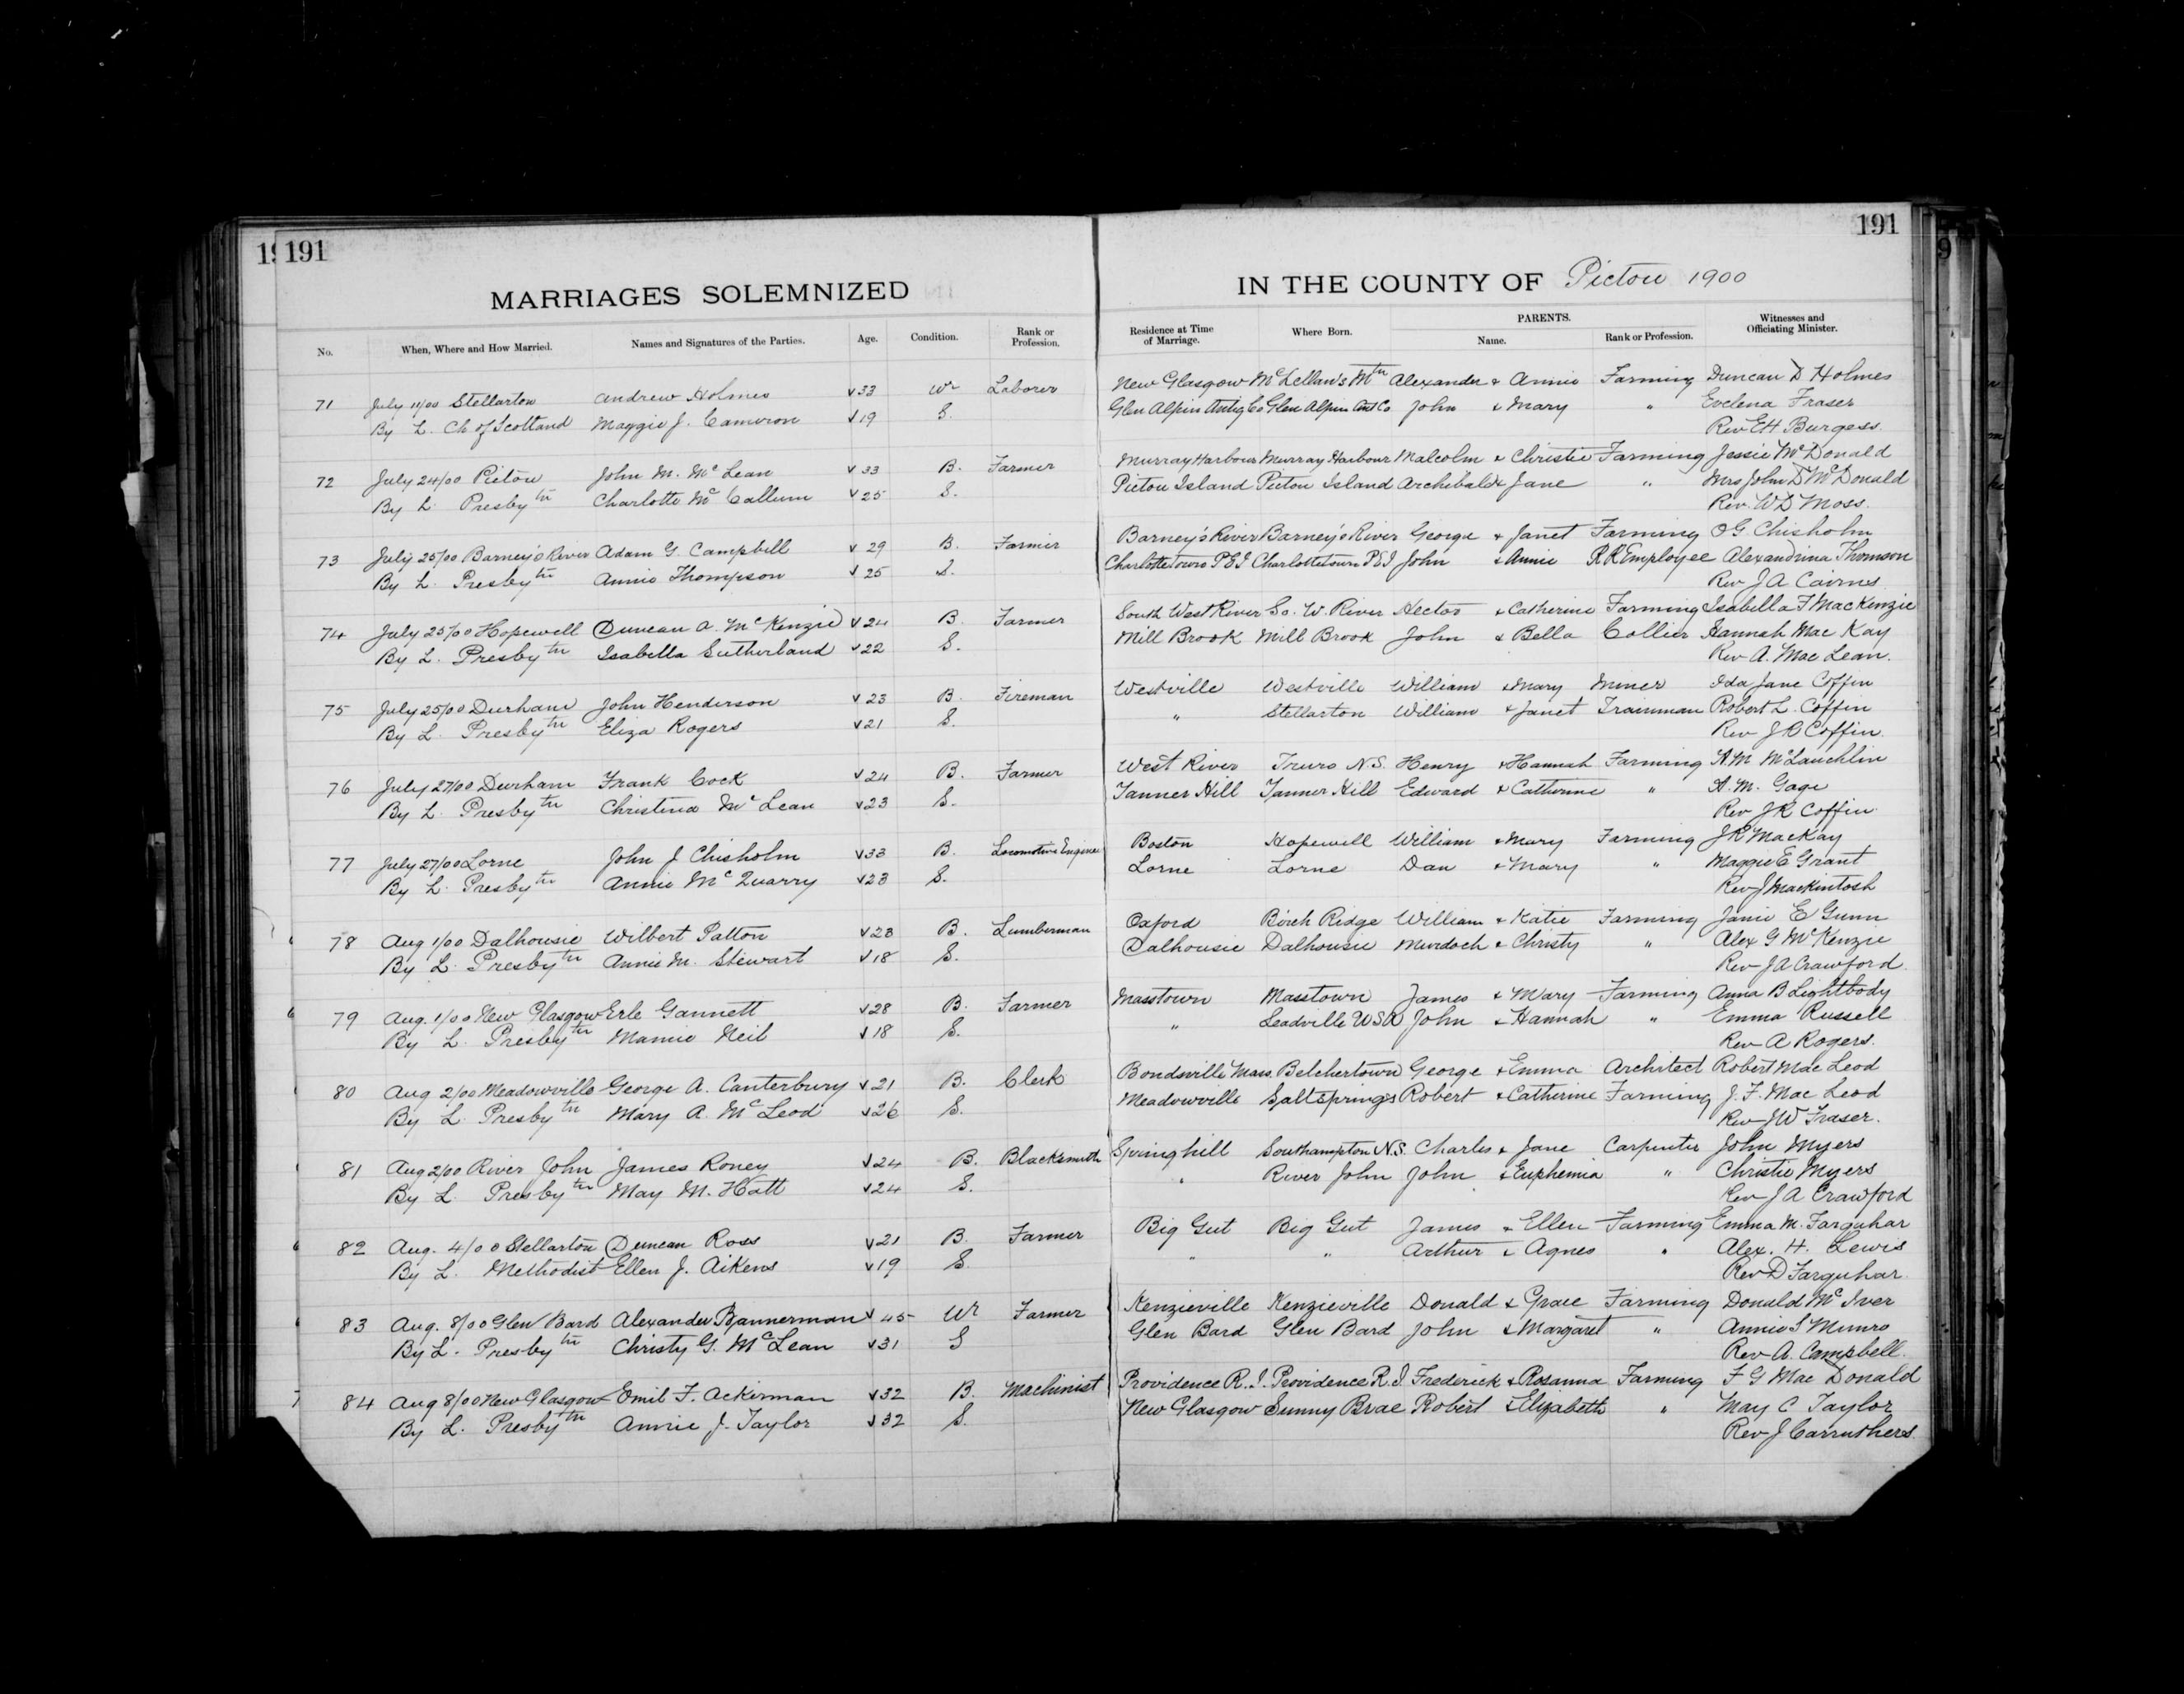 191 191 191
MARRIAGES SOLEMNIZED IN THE COUNTY OF Pictou 1900
No. When, Where and How Married. Names and Signatures of the Parties. Age. Condition. Rank or Profession. Residence at Time of Marriage. Where Born. PARENTS. Name. Rank or Profession. Witnesses and Officiating Minister.
71 July 11/00 Stellarton Andrew Holmes v 33 Wr Laborer New Glasgow McLellan's Mtn Alexander & Annie Farming Duncan D Holmes
By L. Ch of Scotland Maggie J. Cameron v 19 S. Glen Alpin Antig Co Glen Alpin Ant Co John & Mary " Evelena Fraser
Rev E H Burgess.
72 July 24/00 Pictou John M. McLean v 33 B. Farmer Murray Harbour Murray Harbour Malcolm & Christie Farming Jessie McDonald
By L. Presbytn Charlotte McCallum v 25 S. Pictou Island Pictou Island Archibald & Jane " Mrs John D McDonald
Rev. W D Moss.
73 July 25/00 Barney's River Adam G. Campbell v 29 B. Farmer Barney's River Barney's River George & Janet Farming O G Chisholm
By L. Presbytn Annie Thompson v 25 S. Charlottetown P E I Charlottetown P E I John & Annie R R Employee Alexandrina Thomson
Rev J A Cairns
74 July 25/00 Hopewell Duncan A. McKenzie v 24 B. Farmer South West River So. W. River Hector & Catherine Farming Isabella F MacKenzie
By L. Presbytn Isabella Sutherland v 22 S. Mill Brook Mill Brook John & Bella Collier Hannah Mac Kay
Rev A. Mac Lean.
75 July 25/00 Durham John Henderson v 23 B. Fireman Westville Westville William & Mary Miner Ida Jane Coffin
By L. Presbytn Eliza Rogers v 21 S. " Stellarton William & Janet Trainman Robert L. Coffin
Rev J R Coffin.
76 July 27/00 Durham Frank Cock v 24 B. Farmer West River Truro N.S. Henry & Hannah Farming A. M McLauchlin
By L. Presbytn Christina McLean v 23 S. Tanner Hill Tanner Hill Edward & Catherine " A. M. Gage
Rev J R Coffin.
77 July 27/00 Lorne John J Chisholm v 33 B. Locomotive Engineer Boston Hopewell William & Mary Farming J R MacKay
By L. Presbytn Annie McQuarry v 23 S. Lorne Lorne Dan & Mary " Maggie E Grant
Rev J Mackintosh
78 Aug 1/00 Dalhousie Wilbert Patton v 23 B. Lumberman Oxford Birch Ridge William & Katie Farming Janie E Gunn
By L. Presbytn Annie M. Stewart v 18 S. Dalhousie Dalhousie Murdoch & Christy " Alex G McKenzie
Rev J A Crawford.
79 Aug. 1/00 New Glasgow Erle Gannett v 28 B. Farmer Masstown Masstown James & Mary Farming Anna B Lightbody
By L. Presbytn Mamie Neil v 18 S. " Leadville U S A John & Hannah " Emma Russell
Rev A Rogers.
80 Aug 2/00 Meadowville George A. Canterbury v 21 B. Clerk Bondsville Mass. Belchertown George & Emma Architect Robert Mac Leod
By L. Presbytn Mary A. McLeod v 26 S. Meadowville Saltsprings Robert & Catherine Farming J. F. Mac Leod
Rev J W Fraser.
81 Aug 2/00 River John James Roney v 24 B. Blacksmith Springhill Southampton N.S. Charles & Jane Carpenter John Myers
By L. Presbytn May M. Hatt v 24 S. " River John John & Euphemia " Christie Myers
Rev J A Crawford
82 Aug. 4/00 Stellarton Duncan Ross v 21 B. Farmer Big Gut Big Gut James & Ellen Farming Emma M. Farquhar
By L. Methodist Ellen J. Aikens v 19 S. " " Arthur & Agnes " Alex. H. Lewis
Rev D Farquhar.
83 Aug. 8/00 Glen Bard Alexander Bannerman v 45 Wr Farmer Kenzieville Kenzieville Donald & Grace Farming Donald McIver
By L. Presbytn Christy G. McLean v 31 S Glen Bard Glen Bard John & Margaret " Annie S Munro
Rev A. Campbell.
84 Aug 8/00 New Glasgow Emil F. Ackerman v 32 B. Machinist Providence R. I. Providence R. I. Frederick & Rosanna Farming F G Mac Donald
By L. Presbytn Annie J. Taylor v 32 S. New Glasgow Sunny Brae Robert & Elizabeth " May C Taylor
Rev J Carruthers.